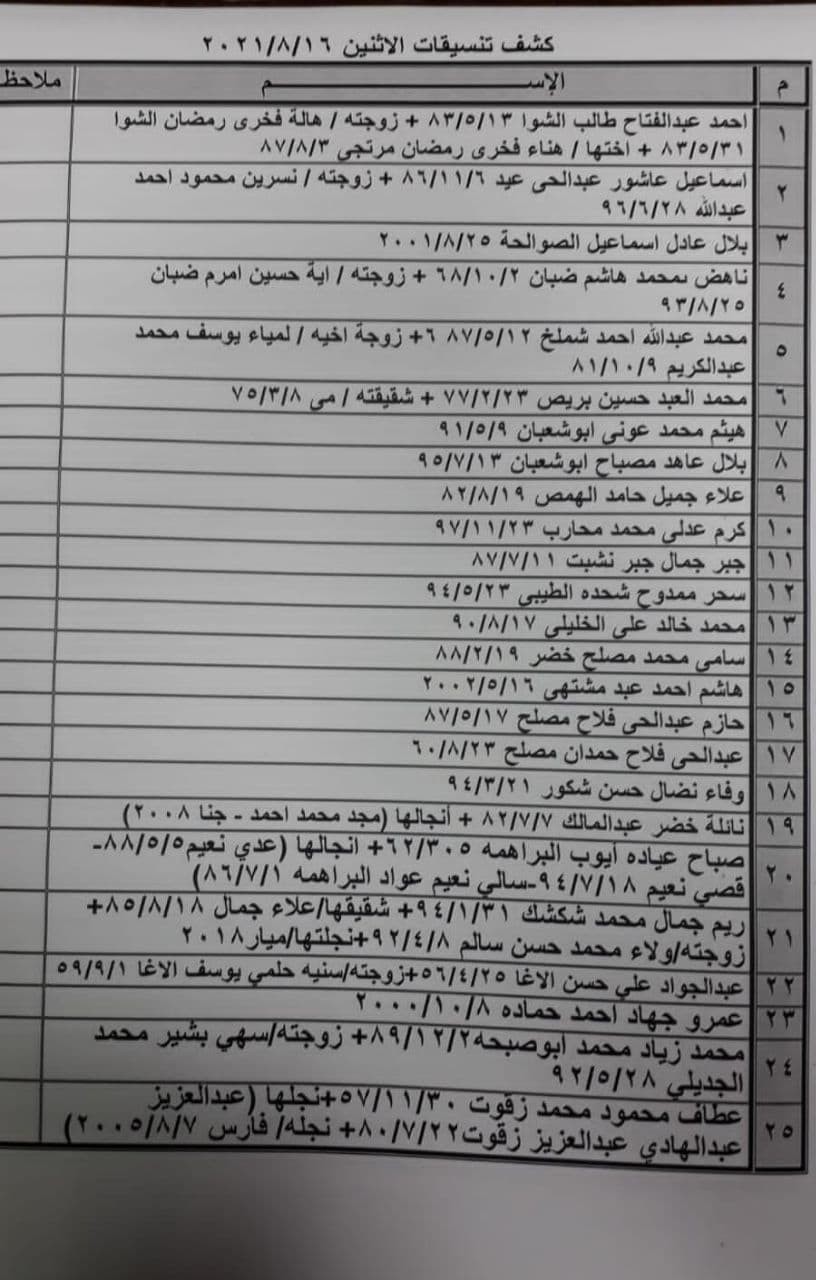 كشف تنسيقات الاثنين ٢٠٢١/٨/١٦
م الإســـم ملاحظ
١ احمد عبدالفتاح طالب الشوا ٨٣/٥/١٣ + زوجته / هالة فخرى رمضان الشوا
٨٣/٥/٣١ + اختها / هناء فخرى رمضان مرتجى ٨٧/٨/٣
٢ اسماعيل عاشور عبدالحى عيد ٨٦/١١/٦ + زوجته / نسرين محمود احمد
عبدالله ٩٦/٦/٢٨
٣ بلال عادل اسماعيل الصوالحة ٢٠٠١/٨/٢٥
٤ ناهض محمد هاشم ضبان ٦٨/١٠/٢ + زوجته / اية حسين امرم ضبان
٩٣/٨/٢٥
٥ محمد عبدالله احمد شملخ ٨٧/٥/١٢ ٦+ زوجة اخيه / لمياء يوسف محمد
عبدالكريم ٨١/١٠/٩
٦ محمد العبد حسين بريص ٧٧/٢/٢٣ + شقيقته / مى ٧٥/٣/٨
٧ هيثم محمد عونى ابوشعبان ٩١/٥/٩
٨ بلال عاهد مصباح ابوشعبان ٩٥/٧/١٣
٩ علاء جميل حامد الهمص ٨٢/٨/١٩
١٠ كرم عدلى محمد محارب ٩٧/١١/٢٣
١١ جبر جمال جبر نشبت ٨٧/٧/١١
١٢ سحر ممدوح شحده الطيبى ٩٤/٥/٢٣
١٣ محمد خالد على الخليلى ٩٠/٨/١٧
١٤ سامى محمد مصلح خضر ٨٨/٢/١٩
١٥ هاشم احمد عبد مشتهى ٢٠٠٢/٥/١٦
١٦ حازم عبدالحى فلاح مصلح ٨٧/٥/١٧
١٧ عبدالحى فلاح حمدان مصلح ٦٠/٨/٢٣
١٨ وفاء نضال حسن شكور ٩٤/٣/٢١
١٩ نائلة خضر عبدالمالك ٨٢/٧/٧ + أنجالها (مجد محمد احمد - جنا ٢٠٠٨)
٢٠ صباح عياده أيوب البراهمه ٦٢/٣٠٥+ انجالها (عدي نعيم٨٨/٥/٥-
قصي نعيم ٩٤/٧/١٨-سالي نعيم عواد البراهمه ٨٦/٧/١)
٢١ ريم جمال محمد شكشك ٩٤/١/٣١+ شقيقها/علاء جمال ٨٥/٨/١٨+
زوجته/ولاء محمد حسن سالم ٩٢/٤/٨+نجلتها/ميار٢٠١٨
٢٢ عبدالجواد علي حسن الاغا ٥٦/٤/٢٥+زوجته/سنيه حلمي يوسف الاغا ٥٩/٩/١
٢٣ عمرو جهاد احمد حماده ٢٠٠٠/١٠/٨
٢٤ محمد زياد محمد ابوصبحه٨٩/١٢/٢+ زوجته/سهي بشير محمد
الجديلي ٩٢/٥/٢٨
٢٥ عطاف محمود محمد زقوت ٥٧/١١/٣٠+نجلها (عبدالعزيز
عبدالهادي عبدالعزيز زقوت٨٠/٧/٢٢+ نجله/ فارس ٢٠٠٥/٨/٧)